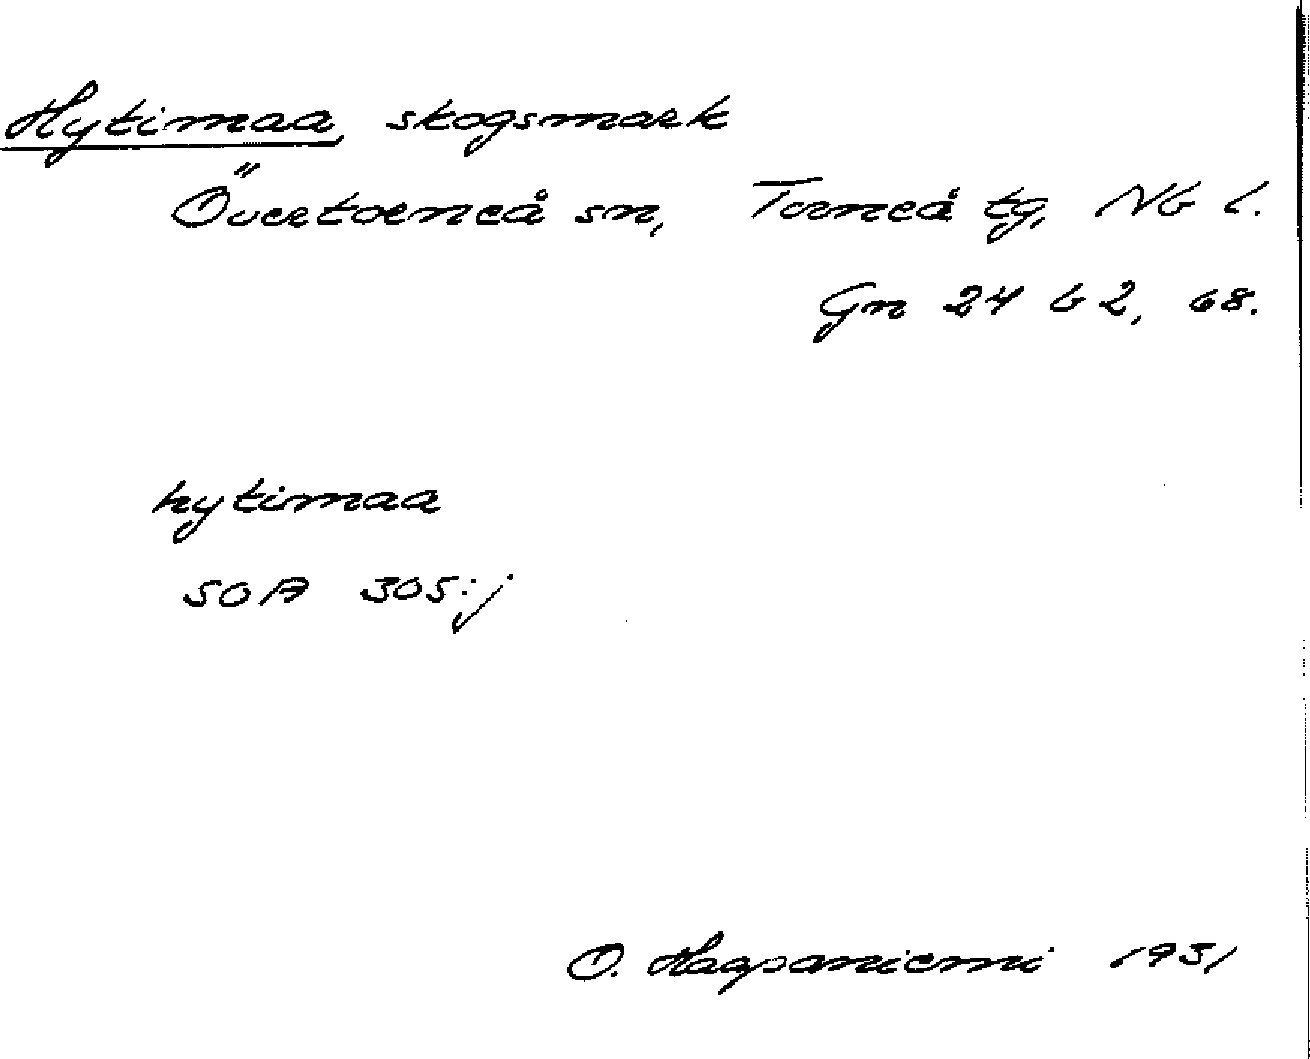 Hytimaa, skogsmark
Övertorneå sn, Torneå tg, Nb l.
Gn 24 b 2, 68.
hytimaa
SOA 305:j
O. Haapaniemi 1931